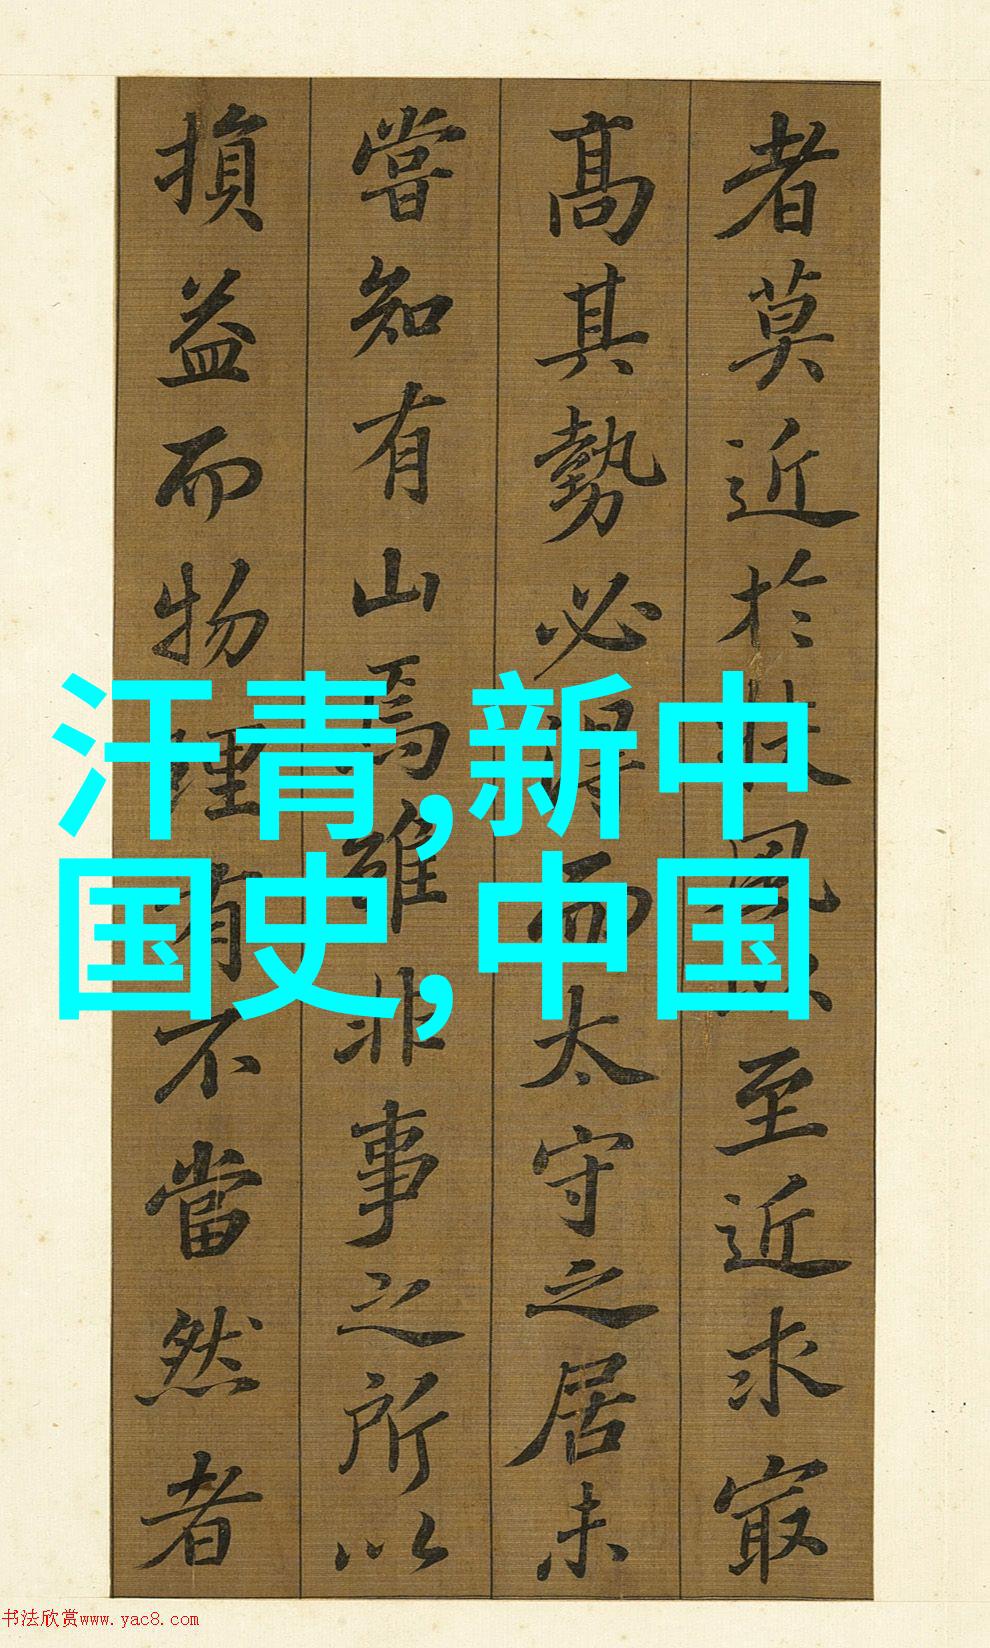 者莫近於扶風以至近求最
高其勢必得而太守之居未
嘗知有山焉雖非事之所以
損益而物理有不當然者
汗青,新中
国史,中国
书法欣赏www.yac8.com